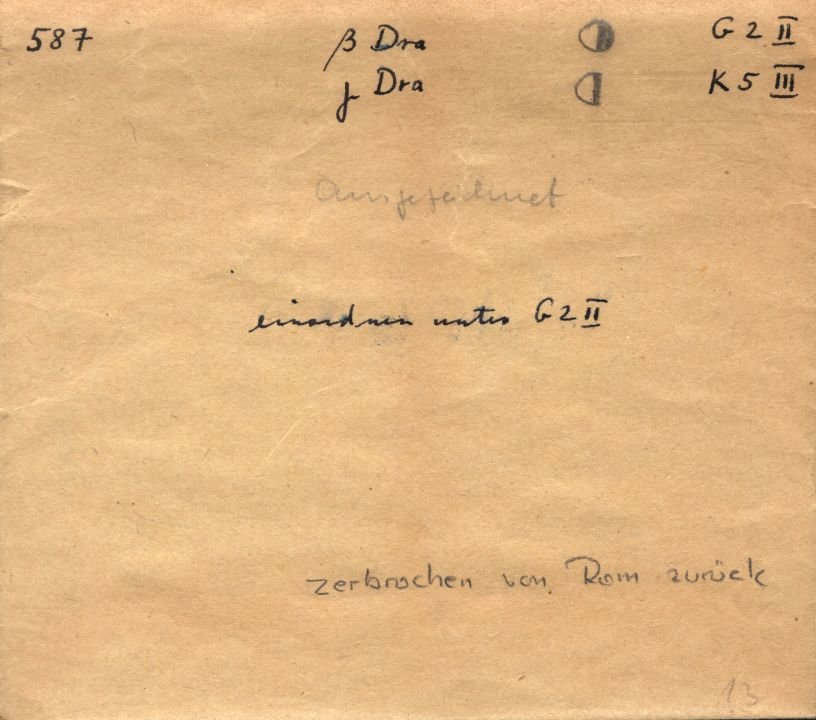 587 β Dra ◑ G 2 II
γ Dra ◐ K 5 III
Ausgezeichnet
einordnen unter G 2 II
zerbrochen von Rom zurück
13